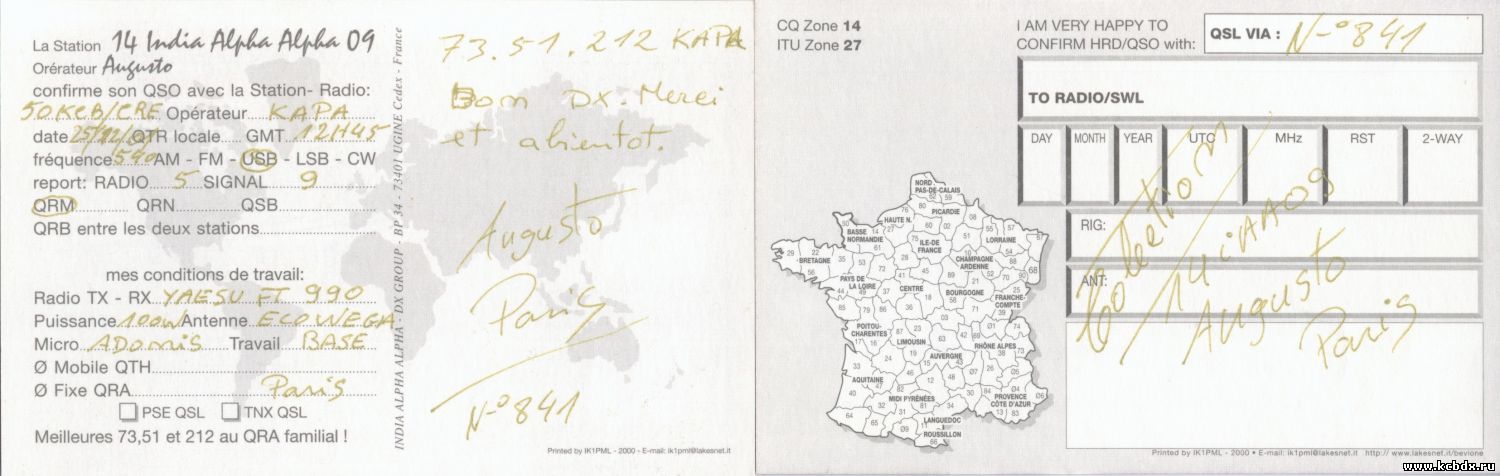 La Station 14 India Alpha Alpha 09
Orérateur Augusto
confirme son QSO avec la Station- Radio:
50KCB/CRE Opérateur KAPA
date 25/12/ QTR locale GMT 12H45
fréquence 590 AM - FM - USB - LSB - CW
report: RADIO 5 SIGNAL 9
QRM QRN QSB
QRB entre les deux stations
mes conditions de travail:
Radio TX - RX YAESU FT 990
Puissance 100W Antenne ECOWEGA
Micro ADONIS Travail BASE
Ø Mobile QTH
Ø Fixe QRA Paris
PSE QSL TNX QSL
Meilleures 73,51 et 212 au QRA familial !
INDIA ALPHA ALPHA - DX GROUP - BP 34 - 73401 UGINE Cedex - France
73.51.212 KAPA
Bon DX. Merci
et abientot.
Augusto
Paris
N-°841
Printed by IK1PML - 2000 - E-mail: ik1pml@lakesnet.it
CQ Zone 14
ITU Zone 27
I AM VERY HAPPY TO
CONFIRM HRD/QSO with:
QSL VIA : N-°841
TO RADIO/SWL
DAY MONTH YEAR UTC MHz RST 2-WAY
RIG:
ANT:
14iAA09
Augusto
Paris
NORD
PAS-DE-CALAIS
PICARDIE
HAUTE N.
BASSE
NORMANDIE
ILE-DE
FRANCE
LORRAINE
CHAMPAGNE
ARDENNE
BRETAGNE
PAYS DE
LA LOIRE
CENTRE
BOURGOGNE
FRANCHE-
COMPTE
POITOU-
CHARENTES
LIMOUSIN
AUVERGNE
RHÔNE ALPES
AQUITAINE
MIDI PYRÉNÉES
PROVENCE
CÔTE D'AZUR
LANGUEDOC
ROUSSILLON
Printed by IK1PML - 2000 • E-mail: ik1pml@lakesnet.it http://www.lakesnet.it/bevione
www.kcbdx.ru